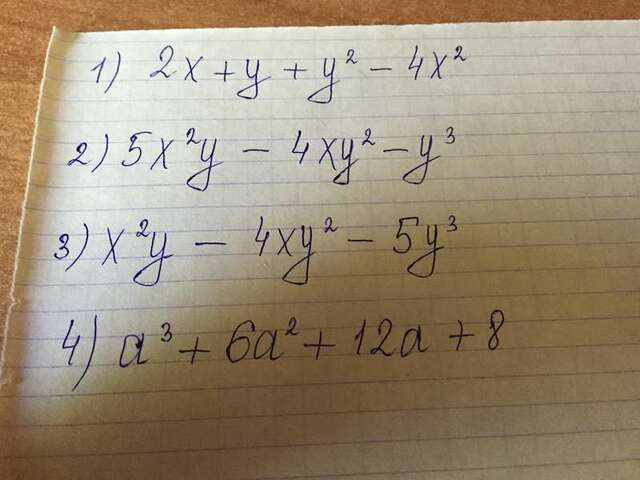 1) 2x + y + y² - 4x²
2) 5x²y - 4xy² - y³
3) x²y - 4xy² - 5y³
4) a³ + 6a² + 12a + 8